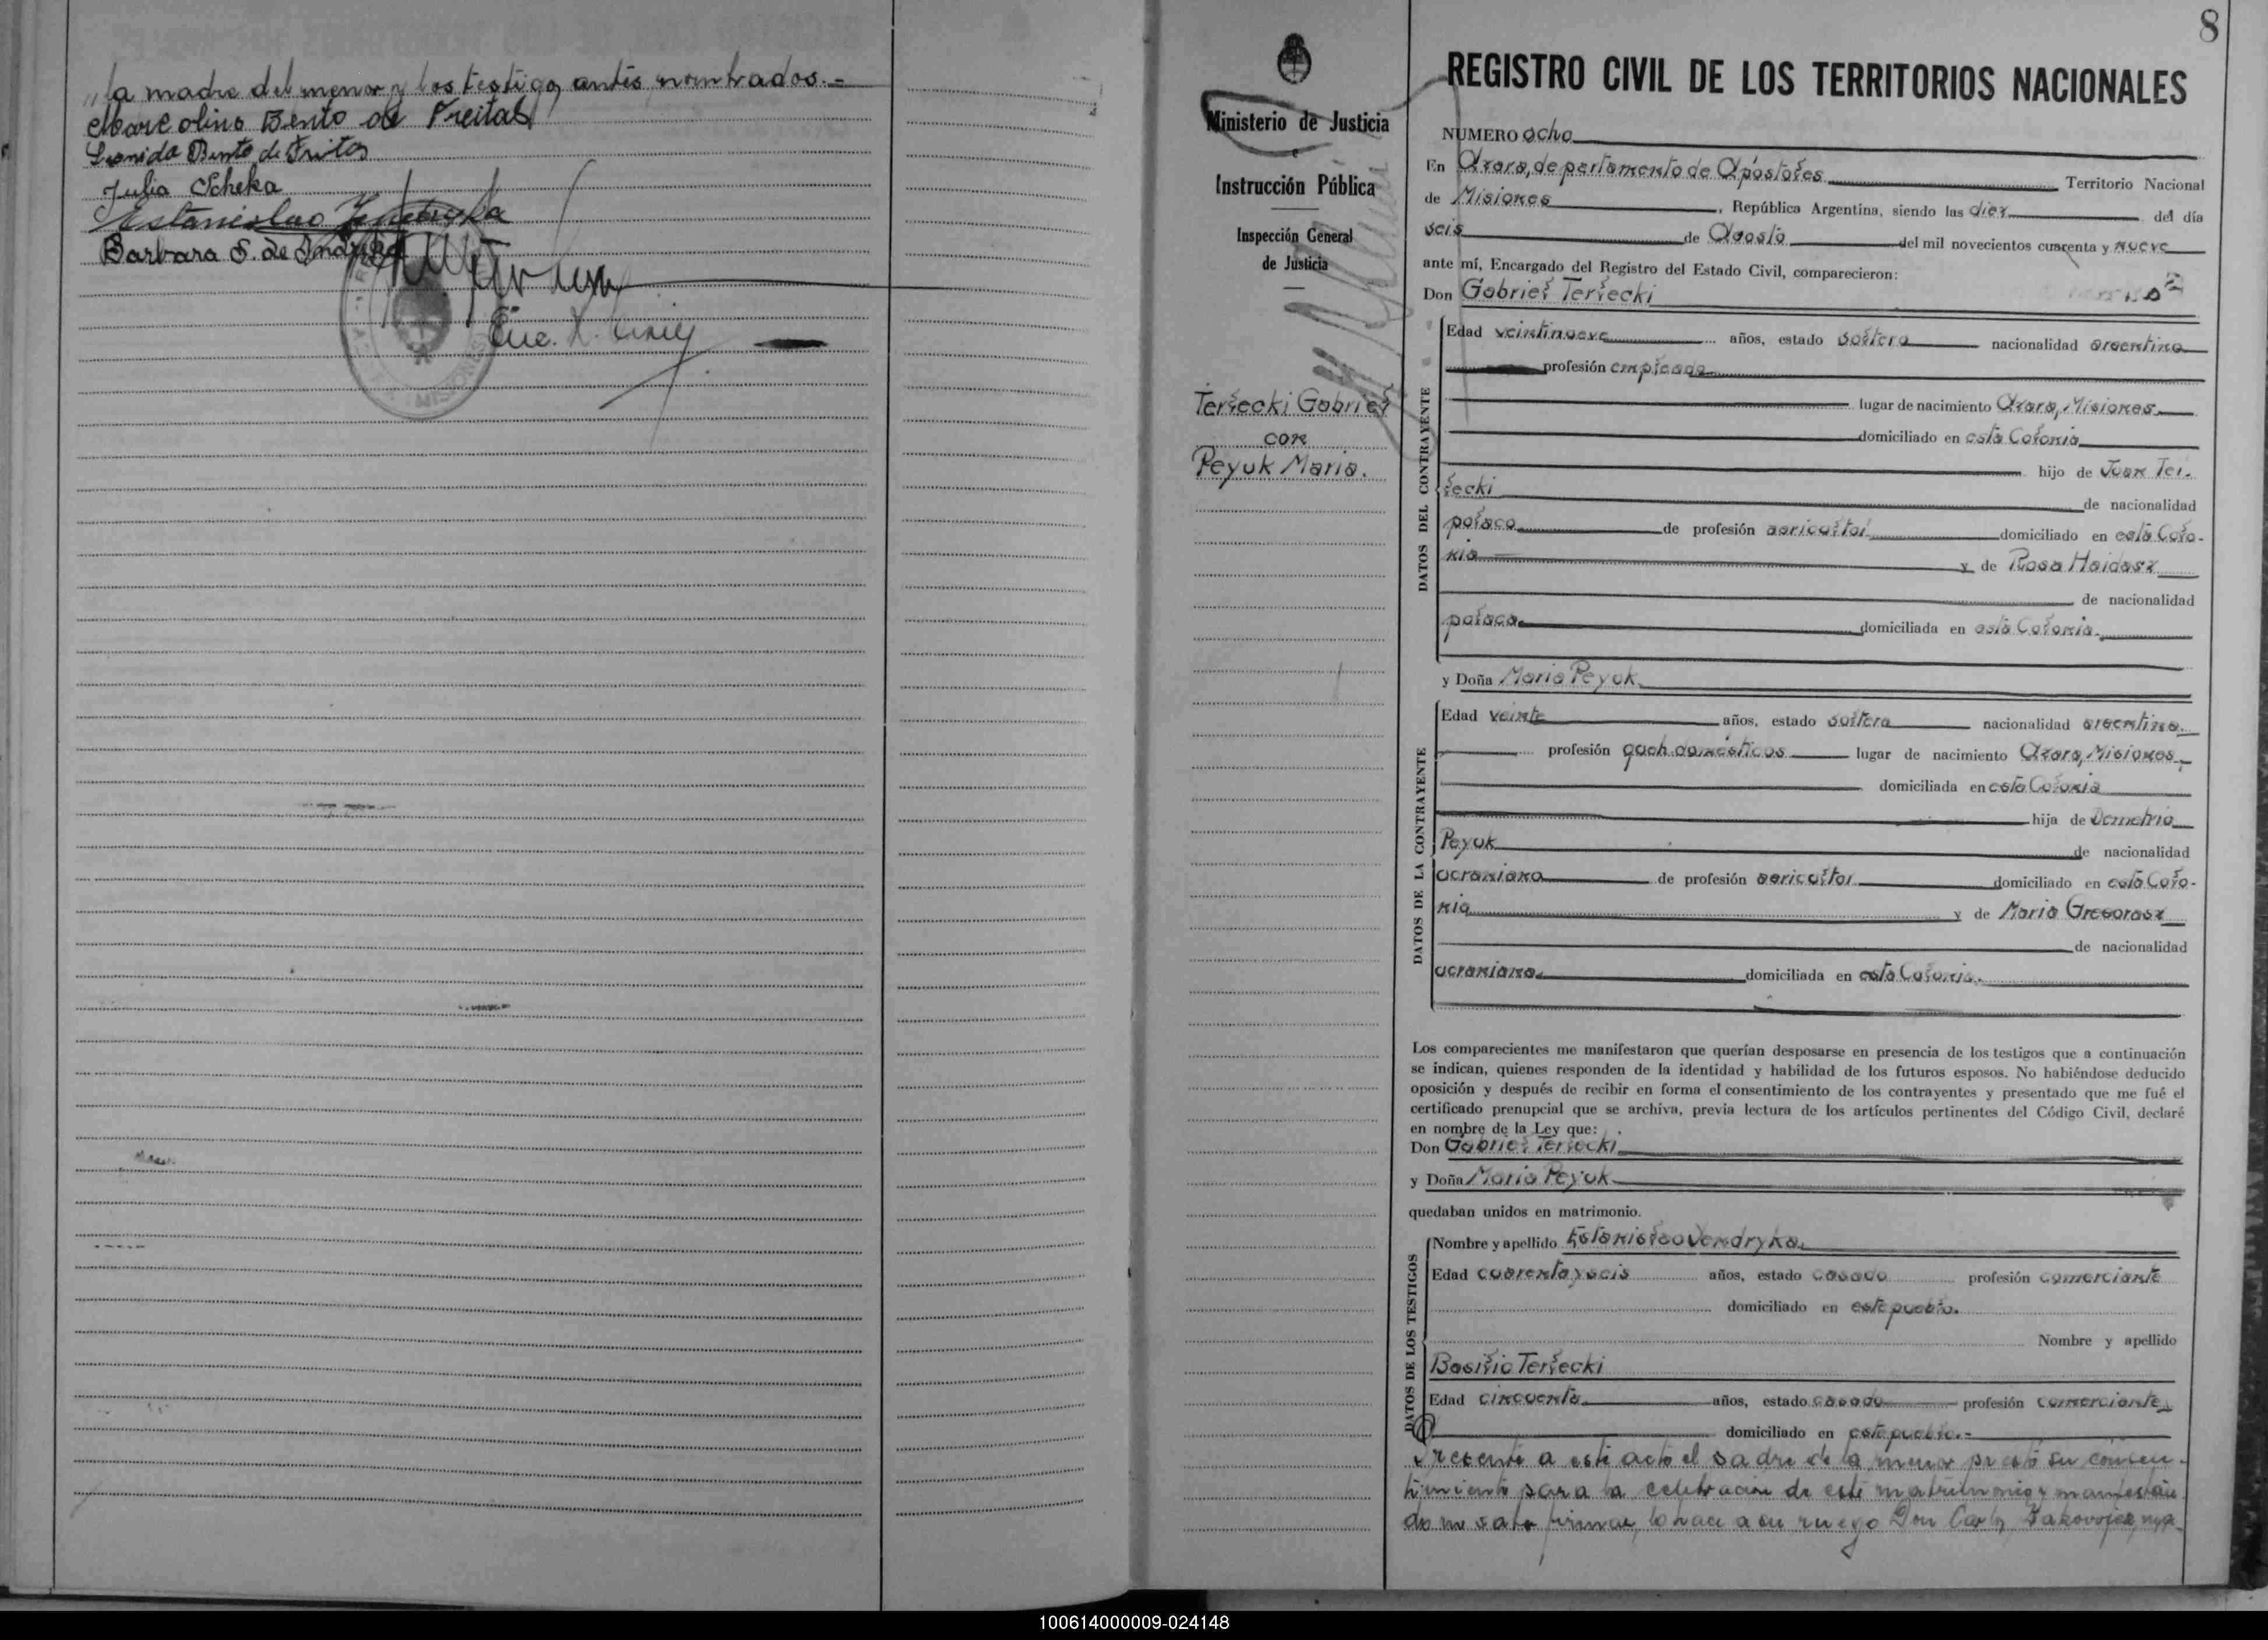 la madre del menor y los testigos antes nombrados.=
Marcolino Bento de Freitas
Leonida Bento de Fritas
Julia Scheka
Estanislao Jendryka
Barbara S. de Indryka
MISIONES
8
REGISTRO CIVIL DE LOS TERRITORIOS NACIONALES
Ministerio de Justicia
e
Instrucción Pública
Inspección General
de Justicia
Terlecki Gabriel
con
Peyuk Maria.
NUMERO ocho
En Azara, departamento de Apóstoles Territorio Nacional
de Misiones, República Argentina, siendo las diez del día
seis de Agosto del mil novecientos cuarenta y nueve
ante mí, Encargado del Registro del Estado Civil, comparecieron:
Don Gabriel Terlecki
DATOS DEL CONTRAYENTE
Edad veintinueve años, estado soltero nacionalidad argentino
profesión empleado
lugar de nacimiento Azara, Misiones
domiciliado en esta Colonia
hijo de Juan Ter-
lecki de nacionalidad
polaco de profesión agricultor domiciliado en esta Colo-
nia y de Rosa Haidasz
de nacionalidad
polaca domiciliada en esta Colonia.
y Doña Maria Peyuk
DATOS DE LA CONTRAYENTE
Edad veinte años, estado soltera nacionalidad argentina.
profesión queh. domésticos lugar de nacimiento Azara, Misiones
domiciliada en esta Colonia
hija de Demetrio
Peyuk de nacionalidad
ucraniano de profesión agricultor domiciliado en esta Colo-
nia y de Maria Gregorasz
de nacionalidad
ucraniana domiciliada en esta Colonia.
Los comparecientes me manifestaron que querían desposarse en presencia de los testigos que a continuación
se indican, quienes responden de la identidad y habilidad de los futuros esposos. No habiéndose deducido
oposición y después de recibir en forma el consentimiento de los contrayentes y presentado que me fué el
certificado prenupcial que se archiva, previa lectura de los artículos pertinentes del Código Civil, declaré
en nombre de la Ley que:
Don Gabriel Terlecki
y Doña Maria Peyuk
quedaban unidos en matrimonio.
DATOS DE LOS TESTIGOS
Nombre y apellido Estanislao Jendryka
Edad cuarenta y seis años, estado casado profesión comerciante
domiciliado en este pueblo.
Nombre y apellido
Basilio Terlecki
Edad cincuenta años, estado casado profesión comerciante
domiciliado en este pueblo.-
Presente a este acto el padre de la menor prestó su consen-
timiento para la celebración de este matrimonio y manifestan-
do no saber firmar, lo hace a su ruego Don Carlos
100614000009-024148